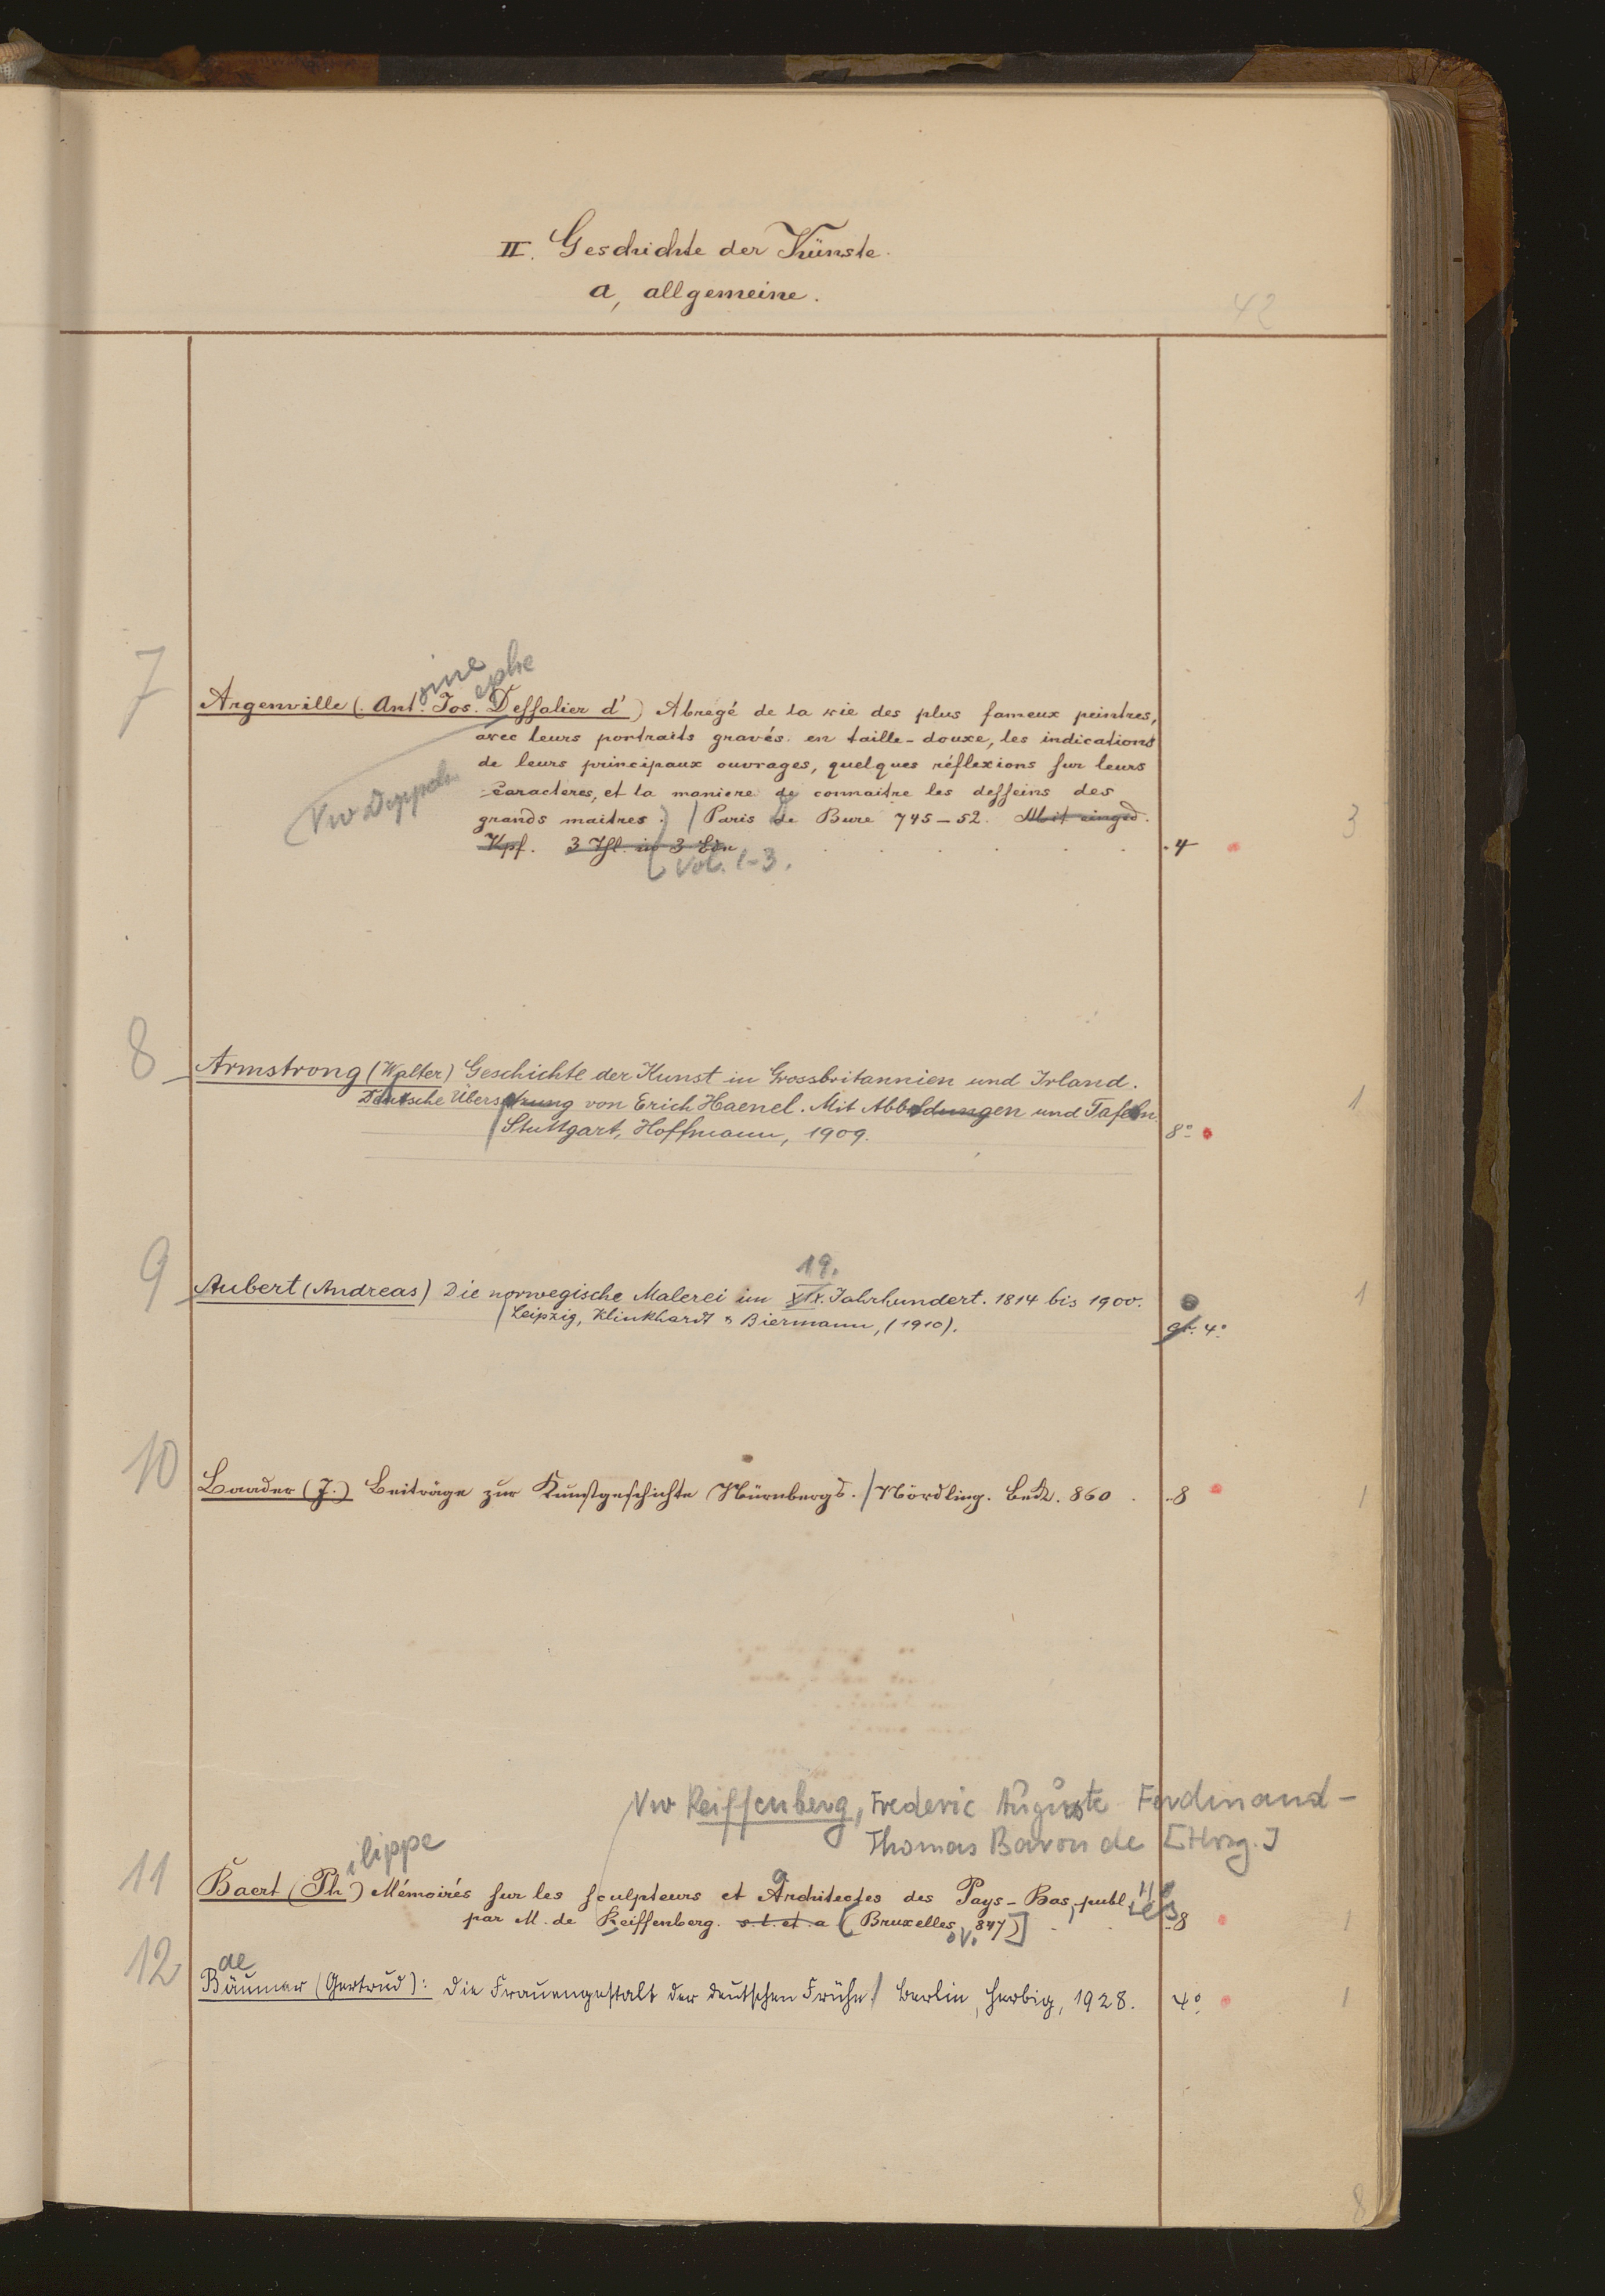 II. Geschichte der Künste.
a, allgemeine.
42
oine ephe
7 Argenville (Ant. Jos. Dessalier d') Abregé de la vie des plus fameux peintres,
avec leurs portraits gravés en taille-douxe, les indications
de leurs principaux ouvrages, quelques réflexions sur leurs
Vw Doppel
caracteres, et la maniere de connaitre les desseins des
grands maitres.) / Paris de Bure 745-52. Mit eingedr. 3
Kpf. 3 Thl. in 3 Bdn 4
[Vol. 1-3.
8 Armstrong (Walter) Geschichte der Kunst in Grossbritannien und Irland.
Deutsche Übersetzung von Erich Haenel. Mit Abbildungen und Tafeln. 1
/ Stuttgart, Hoffmann, 1909. 8°
19.
9 Aubert (Andreas) Die norwegische Malerei im XIX. Jahrhundert. 1814 bis 1900. 1
/ Leipzig, Klinkhardt & Biermann, (1910). gr. 4°
10 Baader (J.) Beiträge zur Kunstgeschichte Nürnbergs. / Nördling. Beck. 860. 8 1
Vw Reiffenberg, Frederic Auguste Ferdinand-
Thomas Baron de [Hrsg.]
ilippe
11 Baert (Ph.) Mémoirés sur les sculpteurs et Architectes des Pays-Bas, publiés
par M. de Reiffenberg. s. l. et a [Bruxelles 847)] 8 1
o V.
de
12 Bäumer (Gertrud): Die Frauengestalt der deutschen Frühe / Berlin, Herbig, 1928. 4° 1
8